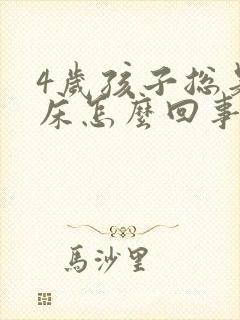 4歲孩子總是
床怎麼回事
馬沙里